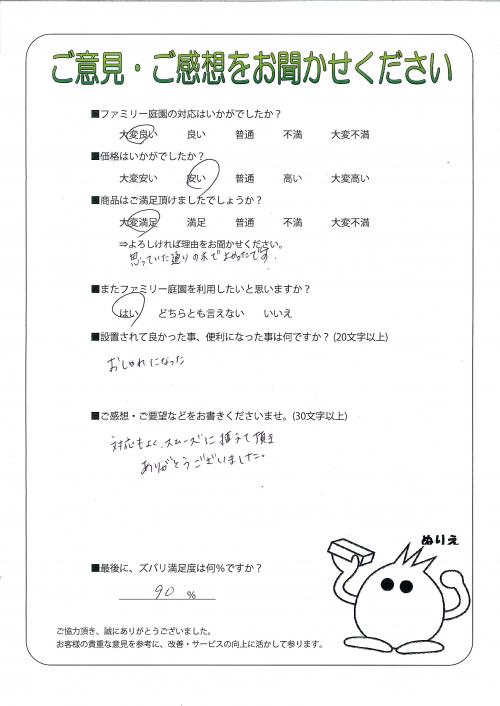 ご意見・ご感想をお聞かせください
■ファミリー庭園の対応はいかがでしたか？
大変良い　良い　普通　不満　大変不満
■価格はいかがでしたか？
大変安い　安い　普通　高い　大変高い
■商品はご満足頂けましたでしょうか？
大変満足　満足　普通　不満　大変不満
⇒よろしければ理由をお聞かせください。
思っていた通りの木でよかったです。
■またファミリー庭園を利用したいと思いますか？
はい　どちらとも言えない　いいえ
■設置されて良かった事、便利になった事は何ですか？(20文字以上)
おしゃれになった
■ご感想・ご要望などをお書きくださいませ。(30文字以上)
対応もよく、スムーズに 頂き
ありがとうございました。
ぬりえ
■最後に、ズバリ満足度は何％ですか？
90 ％
ご協力頂き、誠にありがとうございました。
お客様の貴重な意見を参考に、改善・サービスの向上に活かして参ります。